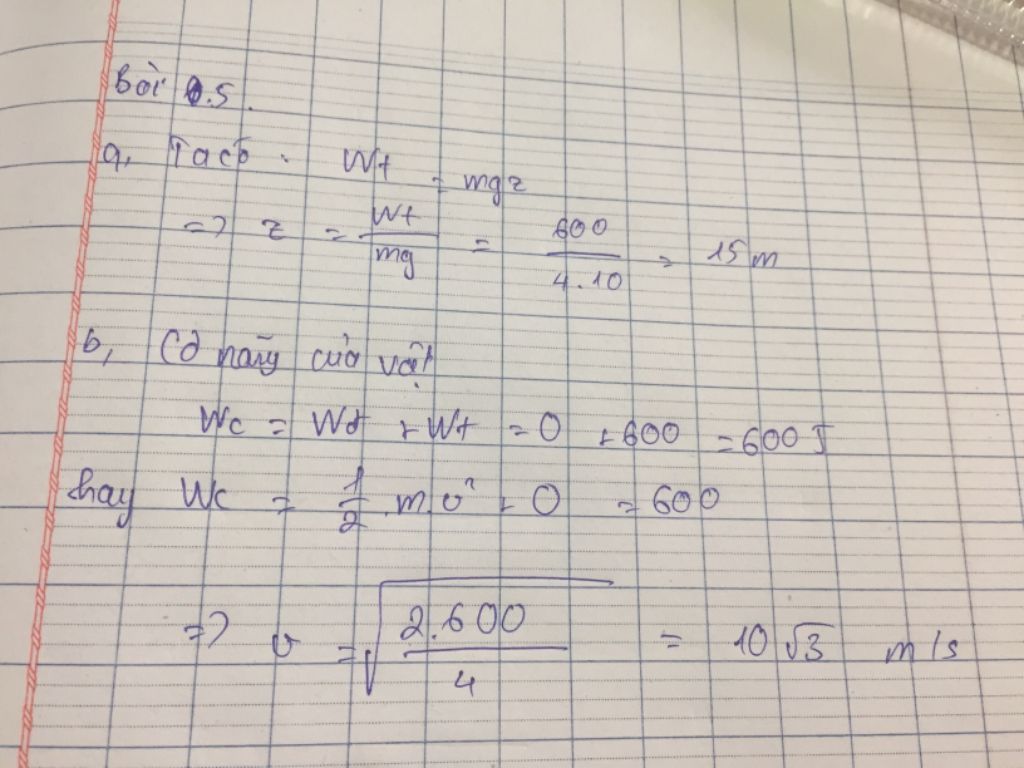 Bài 5.
a, Ta có. Wt = mgz
=> z = Wt/mg = 600/4.10 = 15 m
b, Cơ năng của vật
Wc = Wđ + Wt = 0 + 600 = 600 J
hay Wc = 1/2 .m.v² + 0 = 600
=> v = √(2.600/4) = 10√3 m/s